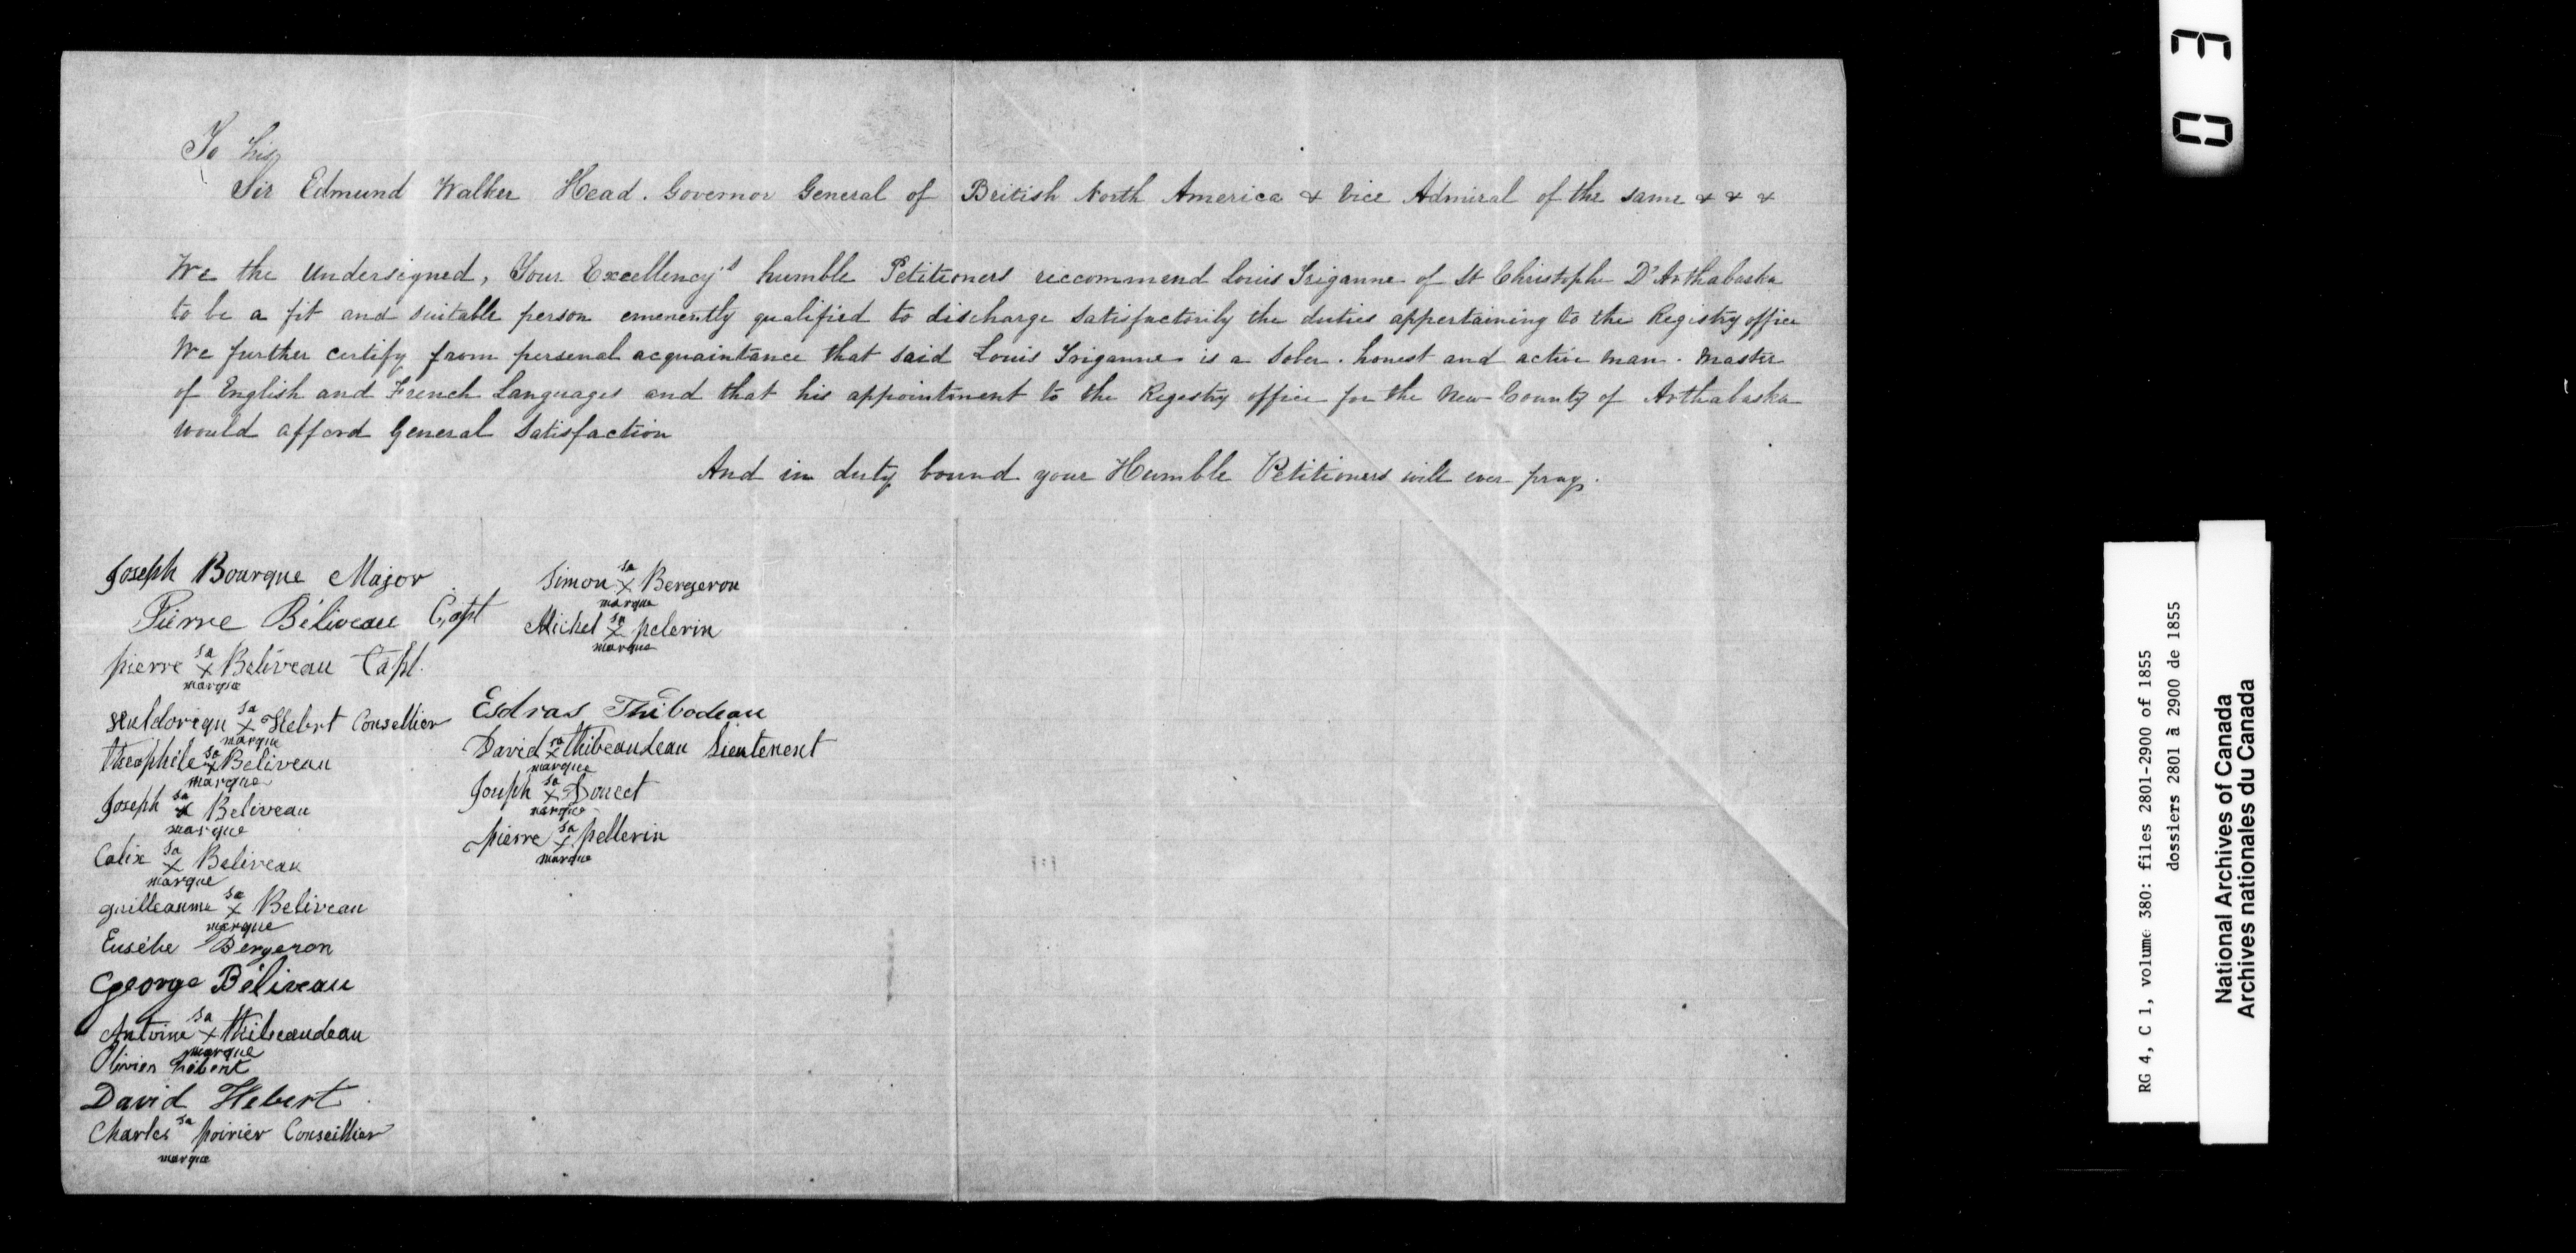 To his
Sir Edmund Walker Head. Governor General of British North America & Vice Admiral of the same & & &
We the Undersigned, Your Excellency's humble Petitioners reccommend Louis Triganne of St Christophe D'Arthabaska
to be a fit and suitable person emenently qualified to discharge satisfactorily the duties appertaining to the Registry office
We further certify from personal acquaintance that said Louis Triganne is a sober. honest and active man. Master
of English and French Languages and that his appointment to the Regestry office for the New County of Arthabaska
would afford General Satisfaction
And in duty bound your Humble Petitioners will ever pray.
Joseph Bourque Major
Pierre Béliveau Capt
pierre sa X Beliveau Capt.
marque
sa X Hebert Consellier
marque
theophile sa X Beliveau
marque
Joseph sa X Beliveau
marque
Calix sa X Beliveau
marque
guilleaume sa X Beliveau
marque
Eusèbe Bergeron
George Béliveau
Antoine sa X thibeaudeau
marque
Olivier hébert
David Hebert
Charles sa poirier Conseillier
marque
Simon sa X Bergeron
marque
Michel sa X pelerin
marque
Esdras Thibodeau
David sa X thibeaudeau Lieutenent
marque
Joseph sa X Doucet
marque
pierre sa X pellerin
marque
03
RG 4, C 1, volume 380: files 2801-2900 of 1855
dossiers 2801 à 2900 de 1855
National Archives of Canada
Archives nationales du Canada